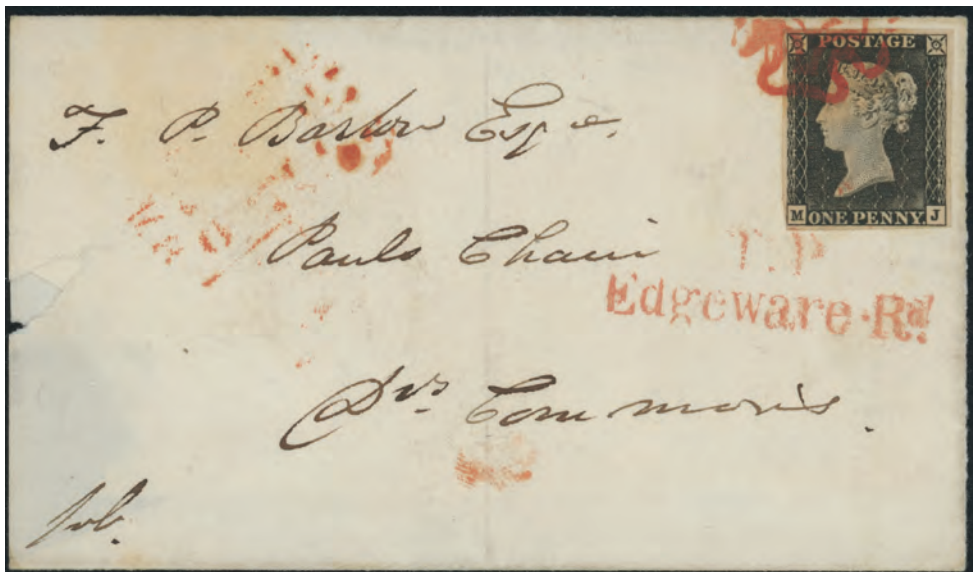 POSTAGE
M ONE PENNY. J
F. P. Barlow Esqre.
Pauls Chain
T.P
Edgeware·Rd.
Drs. Commons.